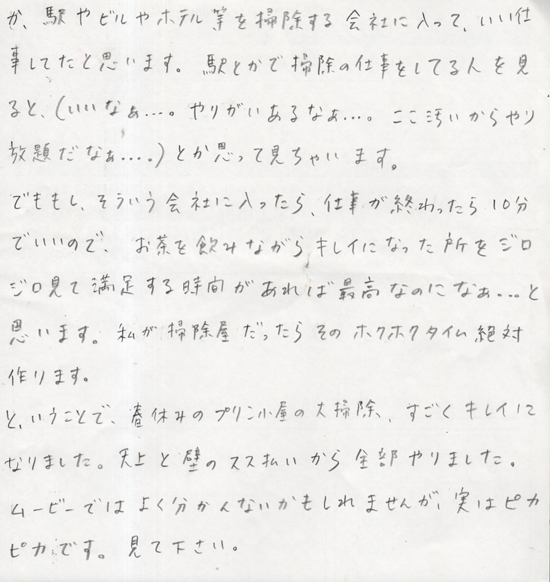 か、駅やビルやホテル等を掃除する会社に入って、いい仕
事してたと思います。駅とかで掃除の仕事をしてる人を見
ると、(いいなぁ…。やりがいあるなぁ…。ここ汚いからやり
放題だなぁ….)とか思って見ちゃいます。
でももし、そういう会社に入ったら、仕事が終わったら10分
でいいので、お茶を飲みながらキレイになった所をジロ
ジロ見て満足する時間があれば最高なのになぁ…と
思います。私が掃除屋だったらそのホクホクタイム絶対
作ります。
と、いうことで、春休みのプリン小屋の大掃除、すごくキレイに
なりました。天上と壁のスス払いから全部やりました。
ムービーではよく分かんないかもしれませんが、実はピカ
ピカです。見て下さい。